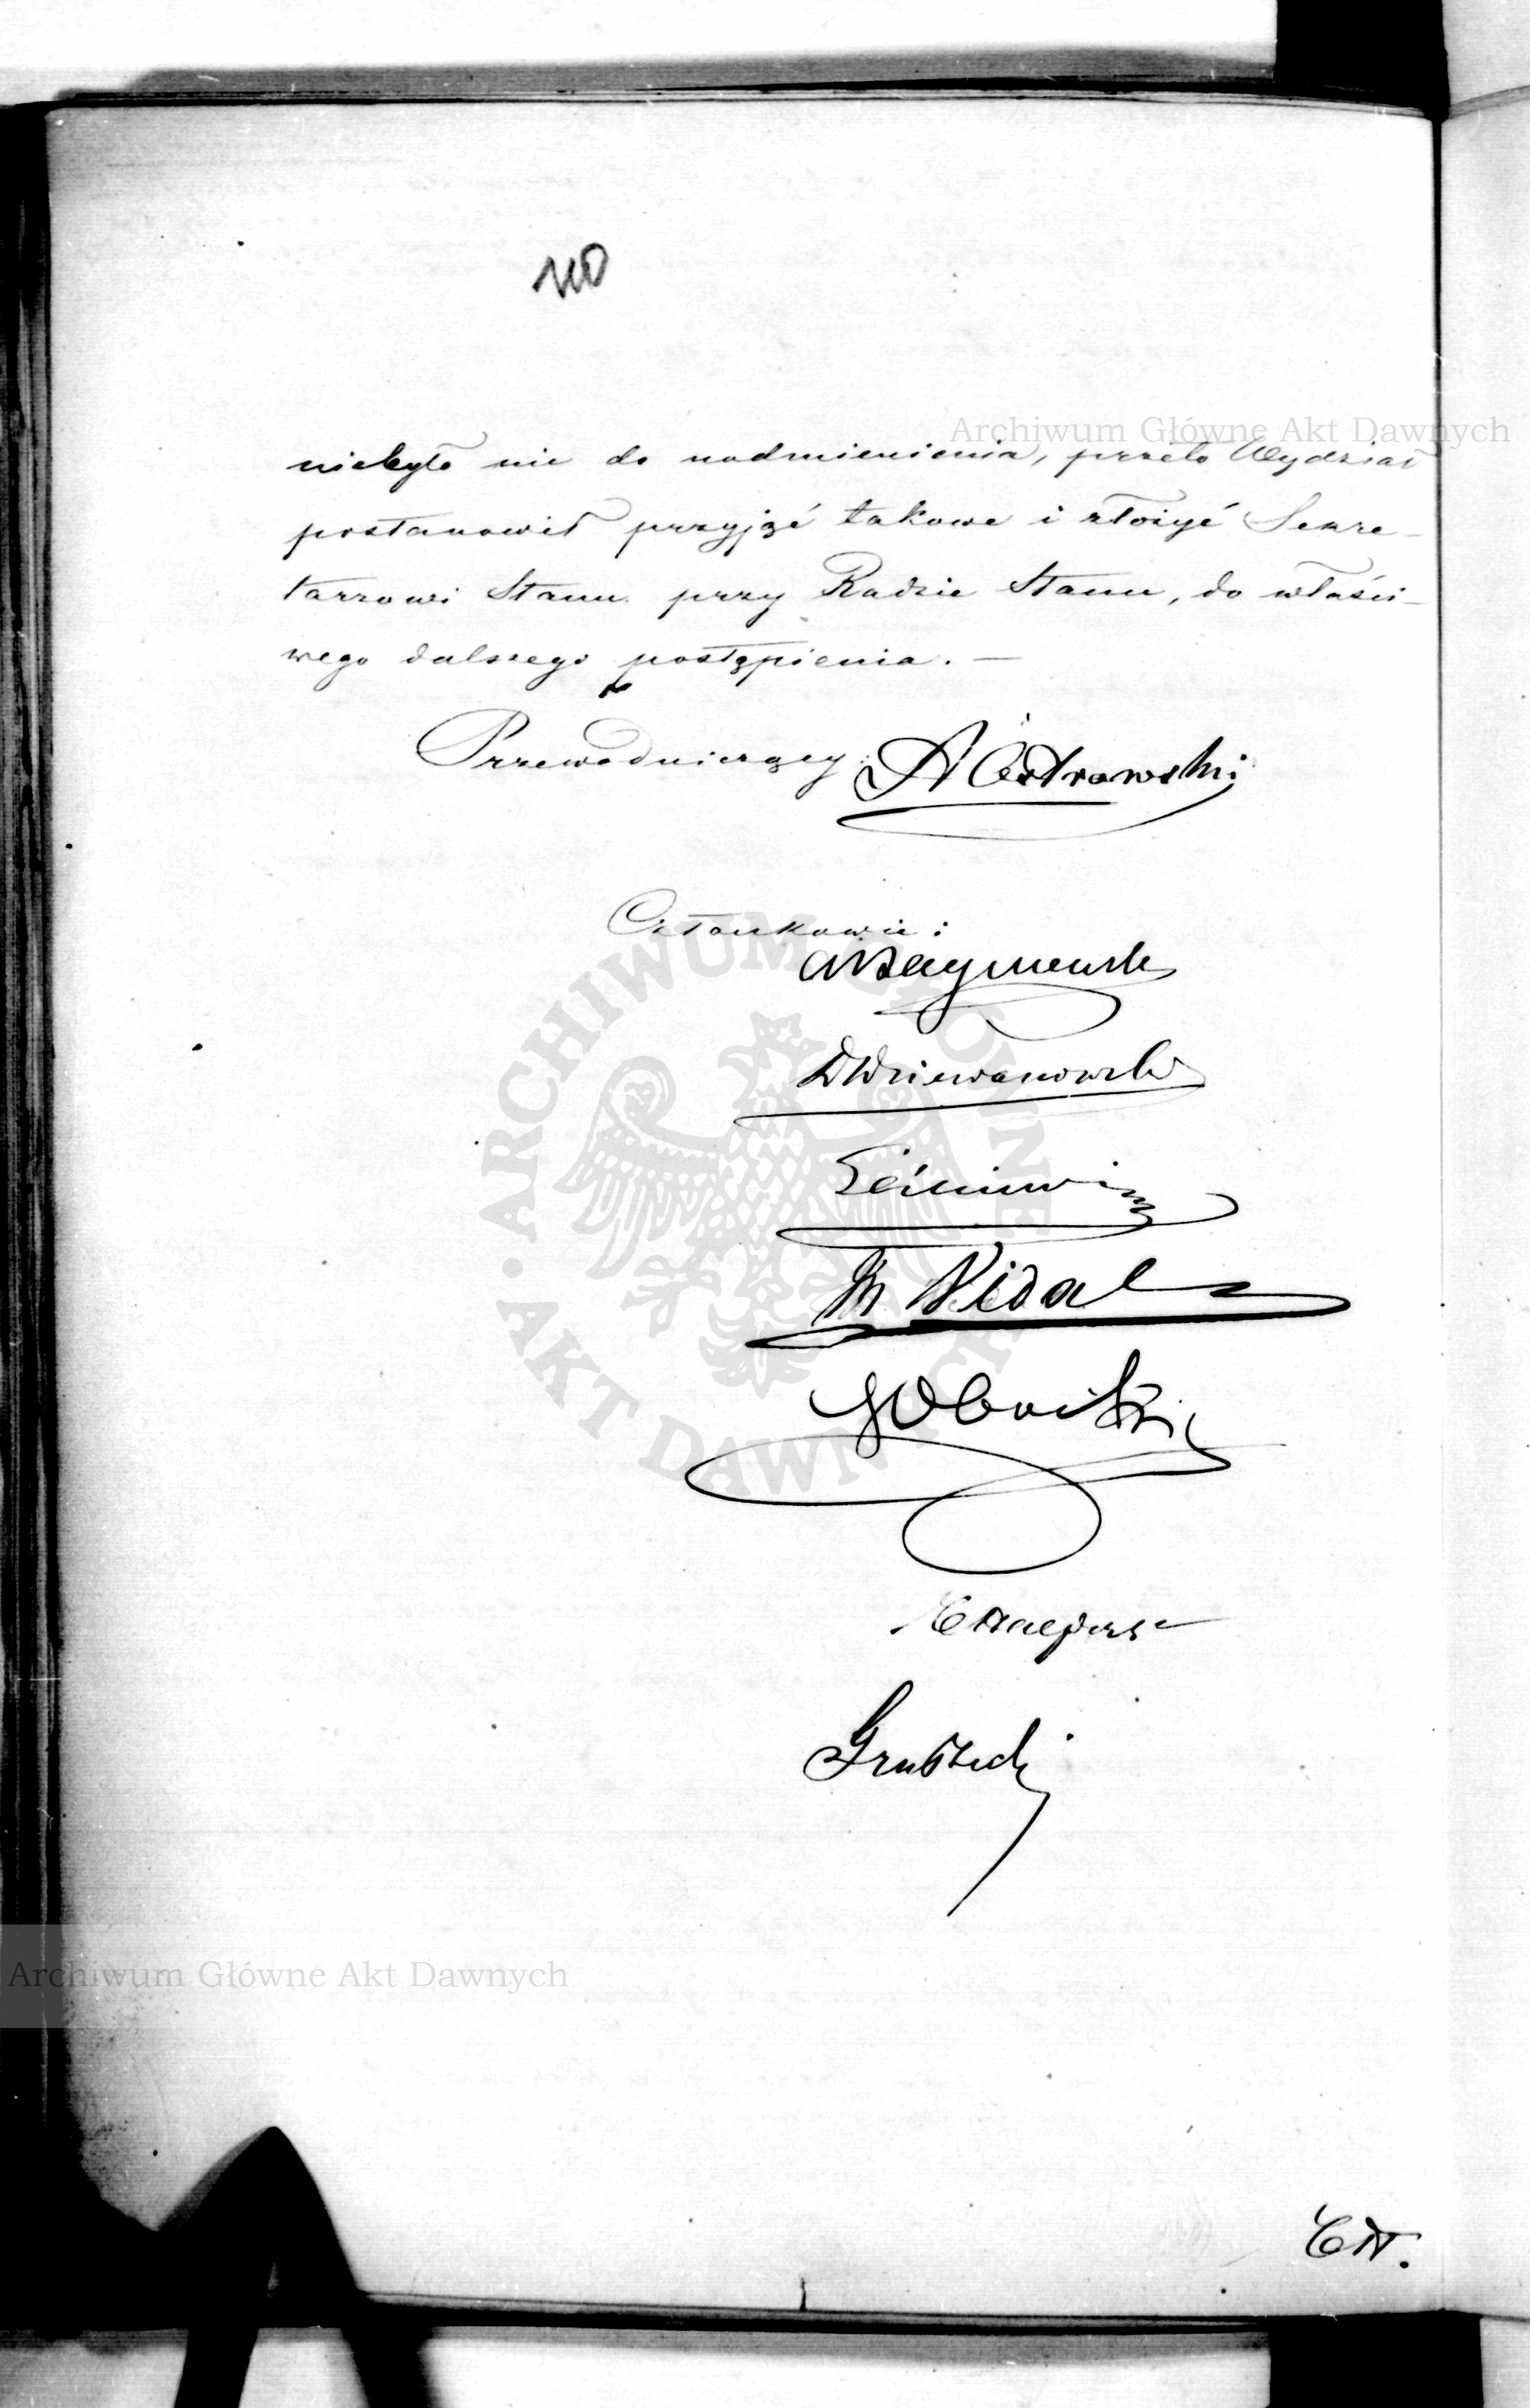 110
Archiwum Główne Akt Dawnych
niebyło nic do nadmienienia, przeto Wydział
postanowił przyjąć takowe i złożyć Sekre-
tarzowi Stanu przy Radzie Stanu, do właści-
wego dalszego postąpienia. —
Przewodniczący: A Ostrowski
Członkowie:
DDziewanowski
Leśniewicz
Vidal
ARCHIWUM GŁÓWNE
AKT DAWNYCH
Grabski
Archiwum Główne Akt Dawnych